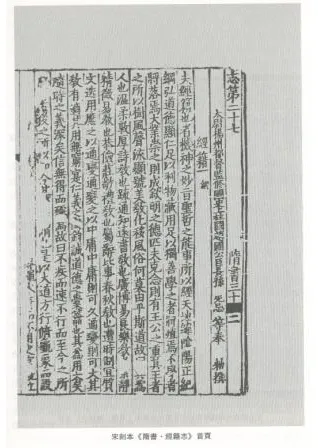 志第二十七
隋書三十二
太尉揚州都督監修國史上柱國趙國公臣長孫無忌等奉敕撰
經籍一 經
夫經籍也者機神之妙旨聖哲之能事所以經天地緯陰陽正紀
綱弘道德顯仁足以利物藏用足以獨善學之者將殖焉不學者
將落焉大業崇之則成欽明之德匹夫克念則有王公之重其王者
之所以樹風聲流顯號美教化移風俗何莫由乎斯道故曰其為
人也溫柔敦厚詩教也疏通知遠書教也廣博易良樂教也潔靜
精微易教也恭儉莊敬禮教也屬辭比事春秋教也遭時制宜質
文迭用應之以通變通變之以中庸中庸則可久通變則可大其
教有適其用無窮實仁義之陶鈞誠道德之橐籥也其為用大矣
隨時之義深矣言無得而稱焉故曰不疾而速不行而至今之所
是以大道方行俯龜象而設
宋刻本《隋書·經籍志》首頁